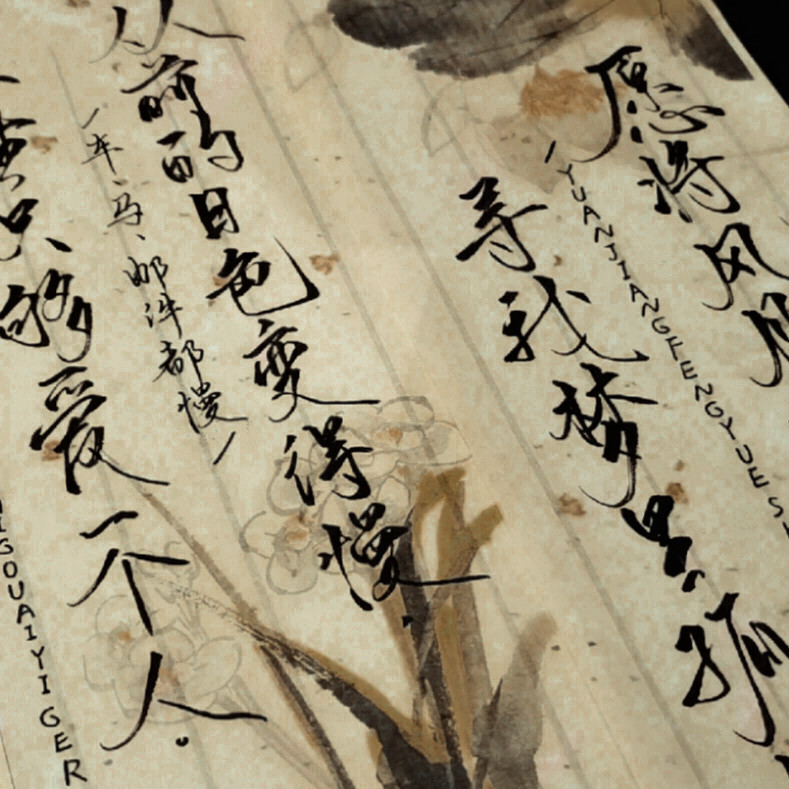 愿将风月
/YUANJIANGFENGYUESI
寻我 与孤
从前的日色变得慢.
/车、马、邮件都慢/
一生只够爱一个人.
IGOUAIYIGER